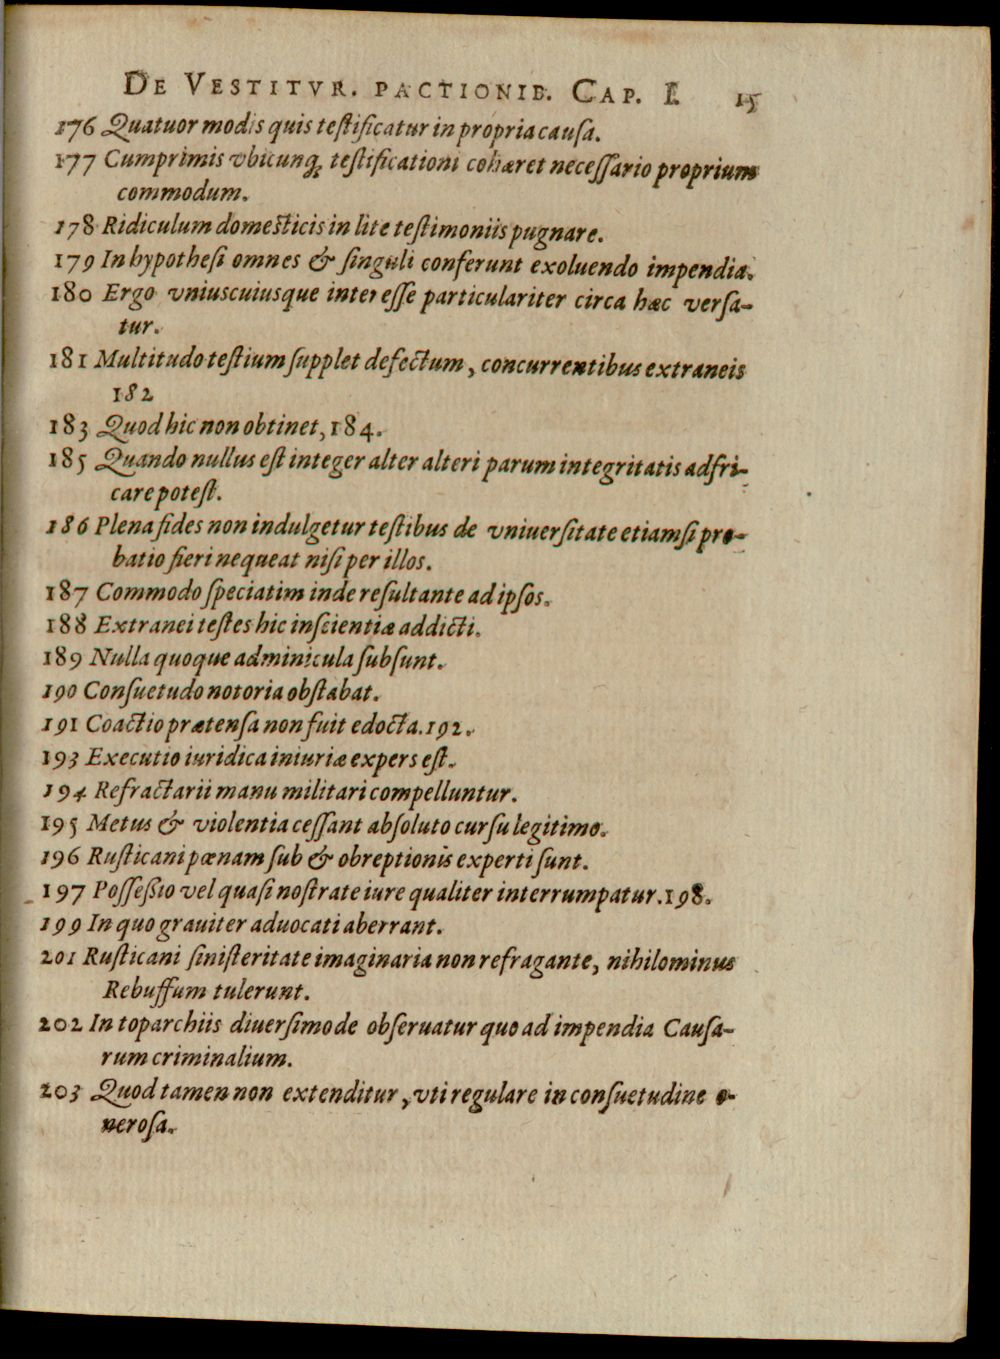 DE VESTITVR. PACTIONIB. CAP. I. 15
176 Quatuor modis quis teſtificatur in propria cauſa.
177 Cumprimis vbicunq; teſtificationi cohæret neceſſario proprium
commodum.
178 Ridiculum domeſticis in lite teſtimoniis pugnare.
179 In hypotheſi omnes & ſinguli conferunt exoluendo impendia.
180 Ergo vniuscuiusque intereſſe particulariter circa hæc verſa-
tur.
181 Multitudo teſtium ſupplet defectum, concurrentibus extraneis
182
183 Quod hic non obtinet, 184.
185 Quando nullus eſt integer alter alteri parum integritatis adfri-
care poteſt.
186 Plena fides non indulgetur teſtibus de vniuerſitate etiamſi pro-
batio fieri nequeat niſi per illos.
187 Commodo ſpeciatim inde reſultante ad ipſos.
188 Extranei teſtes hic inſcientiæ addicti.
189 Nulla quoque adminicula ſubſunt.
190 Conſuetudo notoria obſtabat.
191 Coactio prætenſa non fuit edocta. 192.
193 Executio iuridica iniuriæ expers eſt.
194 Refractarii manu militari compelluntur.
195 Metus & violentia ceſſant abſoluto curſu legitimo.
196 Ruſticani pœnam ſub & obreptionis experti ſunt.
197 Poſſeßio vel quaſi noſtrate iure qualiter interrumpatur. 198.
199 In quo grauiter aduocati aberrant.
201 Ruſticani ſiniſteritate imaginaria non refragante, nihilominus
Rebuffum tulerunt.
202 In toparchiis diuerſimode obſeruatur quo ad impendia Cauſa-
rum criminalium.
203 Quod tamen non extenditur, vti regulare in conſuetudine o-
neroſa.